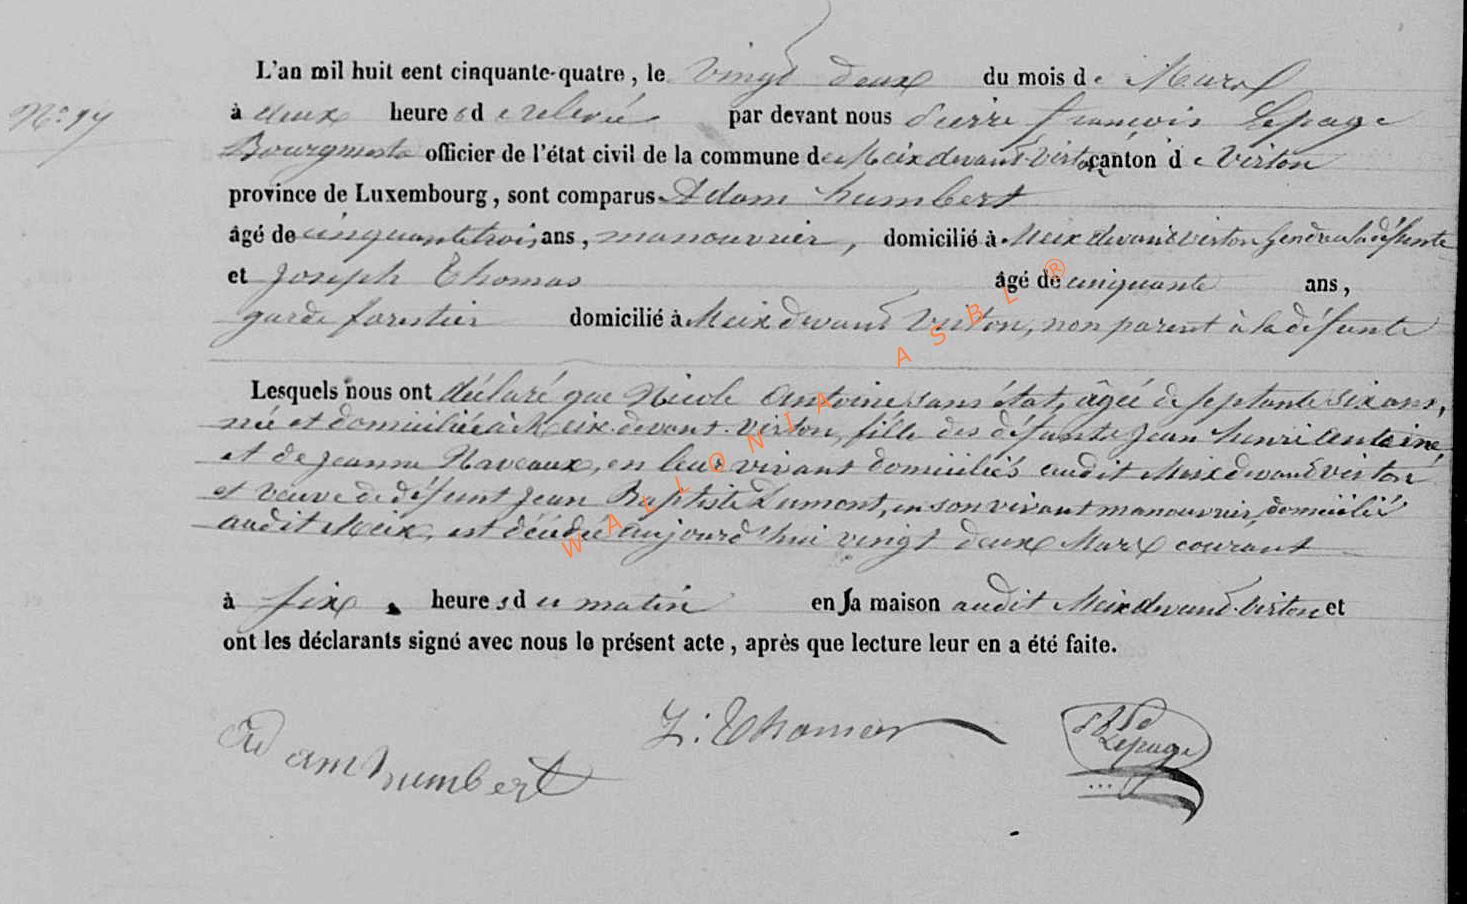 L'an mil huit cent cinquante-quatre, le vingt deux du mois de Mars
N° 17
à deux heures de relevée par devant nous Pierre françois Lepage
Bourgmestre officier de l'état civil de la commune de Meix devant Virton canton de Virton
province de Luxembourg, sont comparus Adam humbert
âgé de cinquante trois ans, manouvrier, domicilié à Meix devant virton gendre à la défunte
et Joseph Thomas âgé de cinquante ans,
garde forestier domicilié à Meix devant Virton, non parent à la défunte
Lesquels nous ont déclaré que Nicole Antoine sans état, âgée de septante six ans,
née et domiciliée à Meix devant-virton, fille des défunts Jean henri antoine,
et de jeanne Naveaux, en leur vivant domiciliés audit Meix devant virton
et veuve de défunt Jean Baptiste Dumont, en son vivant manouvrier, domicilié
audit Meix, est décédée aujourd'hui vingt deux Mars courant
à six heures du matin en sa maison audit Meix devant-Virton et
ont les déclarants signé avec nous le présent acte, après que lecture leur en a été faite.
Adam humbert
J. Thomas
Lepage
WALLONIA ASBL ®